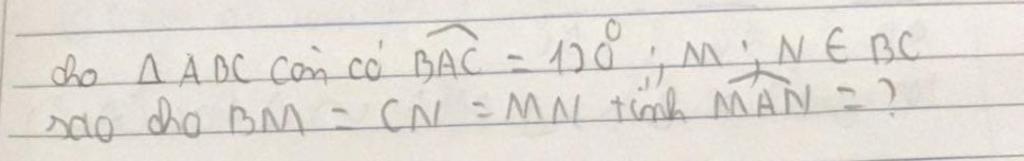 cho Δ ABC cân có BAC = 120° ; M ; N ∈ BC
sao cho BM = CN = MN tính MAN = ?